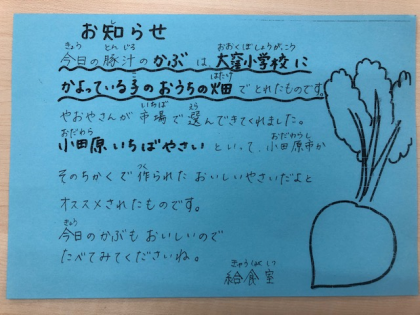 お知らせ
今日の豚汁のかぶは、大窪小学校に
かよっている子のおうちの畑でとれたものです。
やおやさんが市場で選んできてくれました。
小田原いちばやさいといって、小田原市か
そのちかくで作られたおいしいやさいだよと
オススメされたものです。
今日のかぶもおいしいので
たべてみてくださいね。
給食室